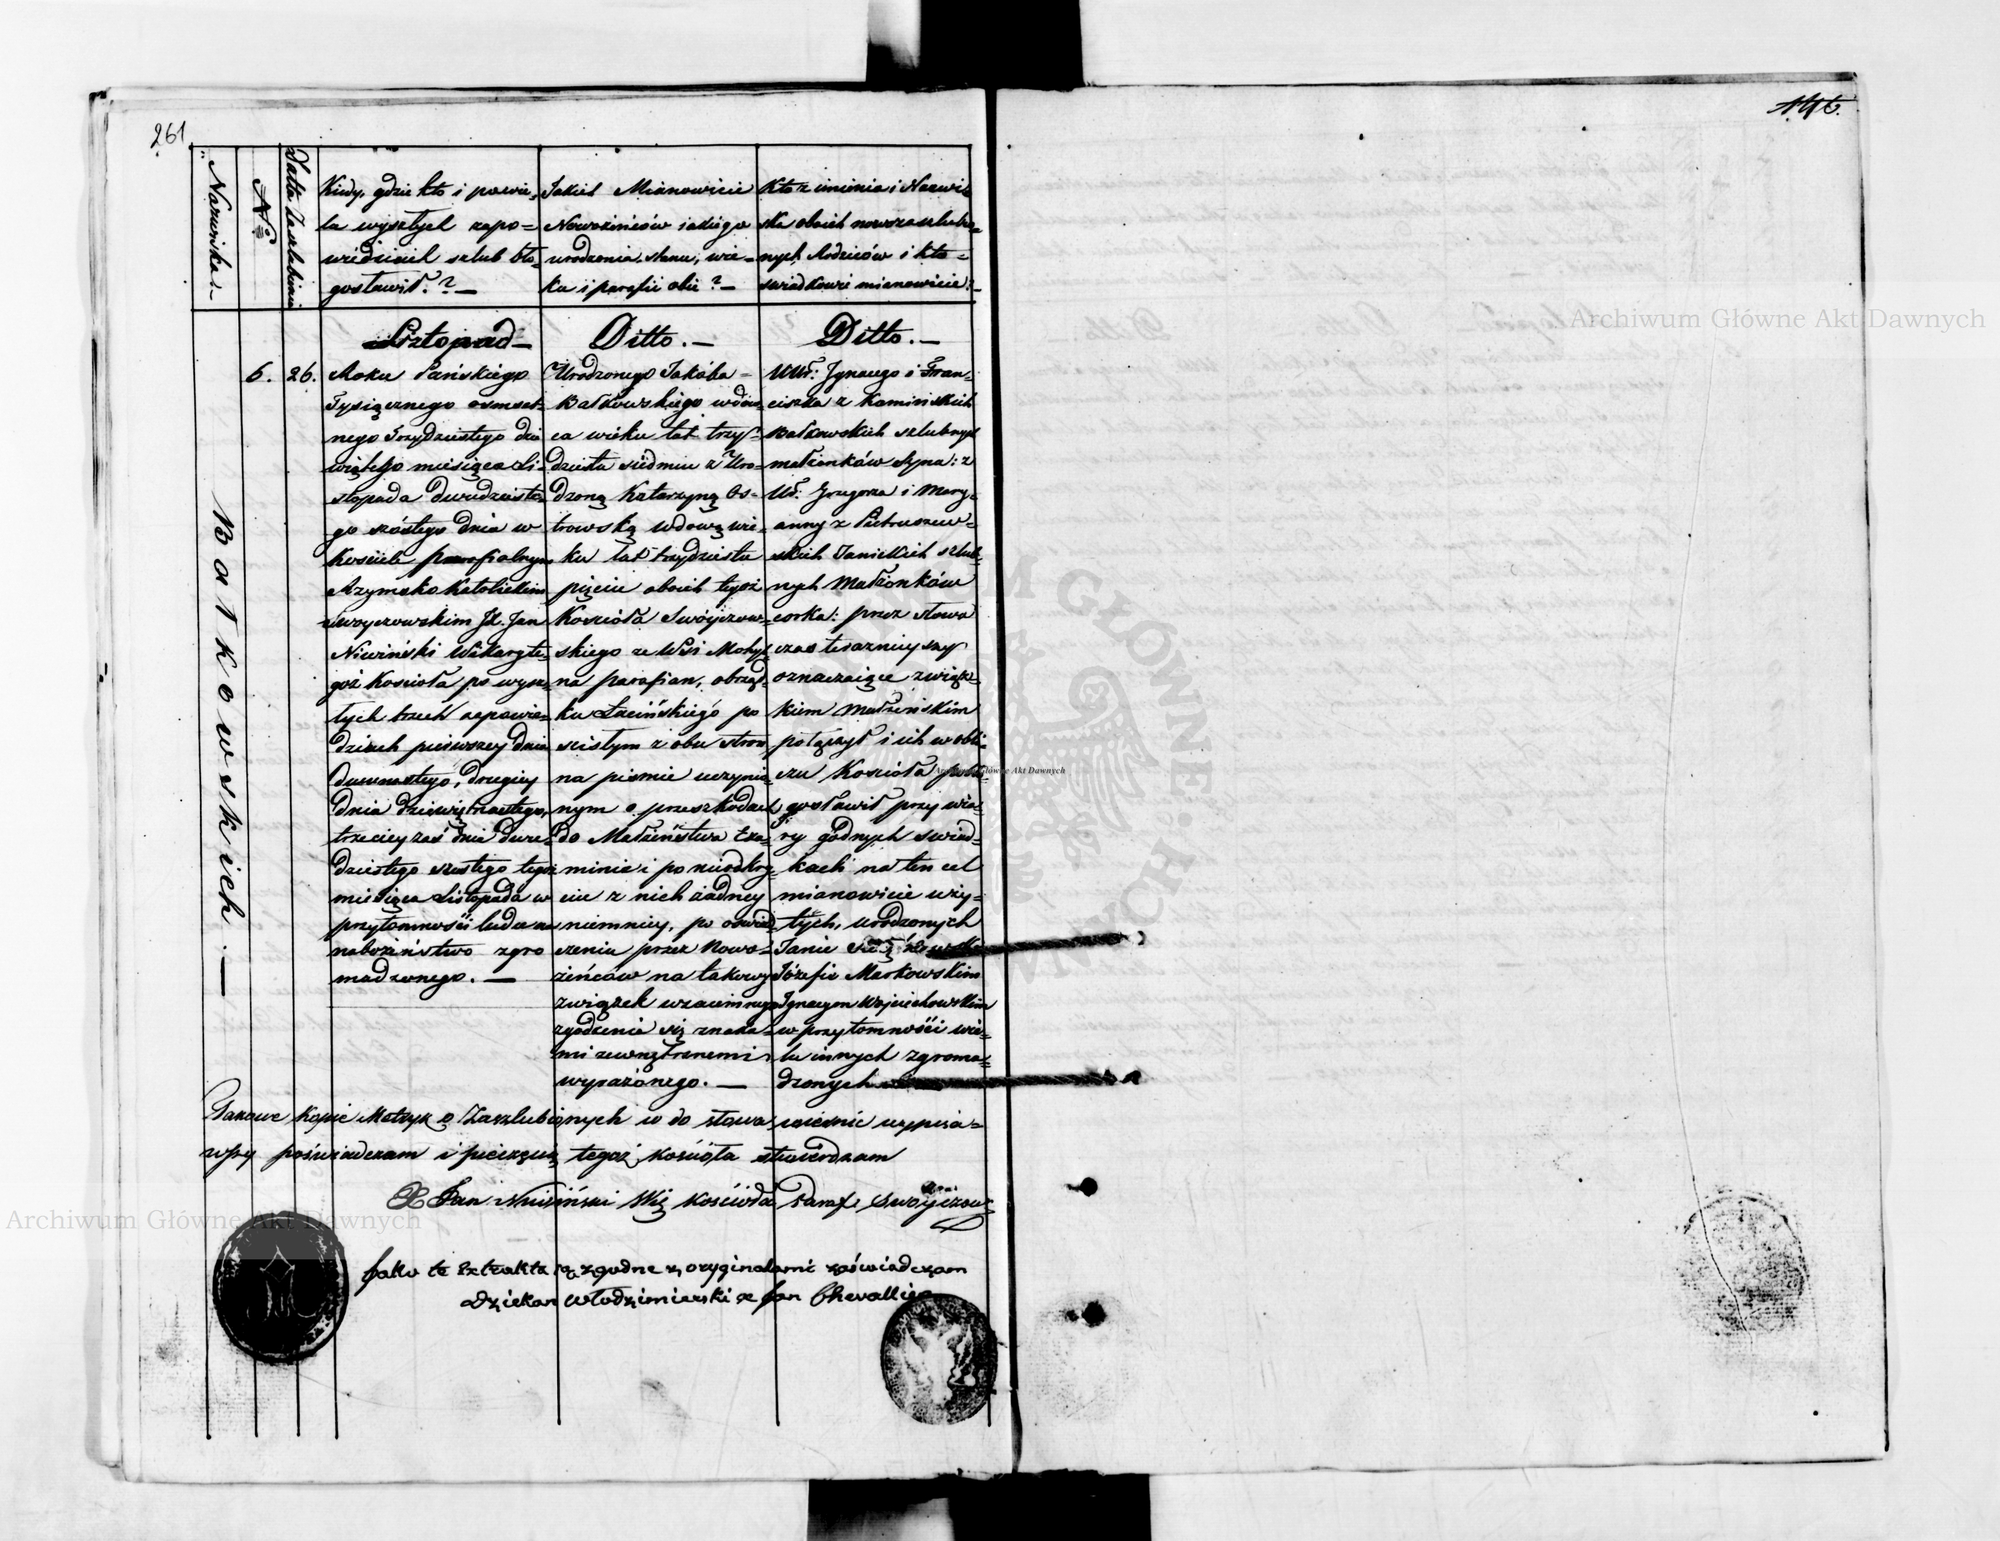 261
146.
Nazwiska.
№
Datta Zaślubienia
Kiedy, gdzie kto i po wie-
lu wyszłych zapo-
wiedziach szlub bło-
gosławił. ? —
Jakich Mianowicie
Nowożeniców iakiego
urodzenia, stanu, wie-
ku i parafii obie ? —
Kto z imienia i Nazwis
ska obóich nowozaszlubio-
nych Rodziców i kto
swiadkowie mianowicie:
Listopad —
Ditto. —
Ditto. —
Batkowskich. —
6.
26.
Roku Pańskiego
Tysiącznego osmset-
nego Trzydziestego dzie
wiątego miesiąca Li-
stopada dwudzieste-
go szóstego dnia w
Kościele parafialnym
Rzymsko Katolickim
Swoyczowskim JX. Jan
Niwiński Wikary te-
goż Kościoła po wysz-
łych trzech zapowie-
dziach pierwszey dnia
dwunastego, drugiey
dnia dziewiętnastego,
trzeciey zaś dnia dwu-
dziestego szóstego tegoż
miesiąca Listopada w
przytomności ludu na
nabożeństwo zgro
madzonego. —
Urodzonego Jakóba
Batkowskiego wdow-
ca wieku lat trzy-
dziestu siedmiu z Uro-
dzoną Katarzyną Os-
trowską wdową wie-
ku lat trzydziestu
pięciu oboich tegoż
Kościoła Swóyczow-
skiego ze Wsi Mohyl
na parafian, obrząd-
ku Łacińskiego po
scisłym z obu stron
na pismie uczynio-
nym o przeszkodach
do Małżeństwa Exa-
minie i po nieodkry-
ciu z nich żadney
niemniey, po oswiad-
czeniu przez Nowo-
żeńców na takowy
związek wzaiemnego
zgodzenia się znaka-
mi zewnętrznemi
wyrażonego. —
UUr: Ignacego i Fran-
ciszka z Kaminskich
Batkowskich szlubnych
małżonków Syna: z
Ur. Grzegorza i Mary-
anny z Pietruszew-
skich Janickich szlub-
nych Małżonków
corka: przez słowa
czas teraznieyszy
oznaczaiące związ-
kiem Małżeńskim
połączył i ich w obli-
czu Kościoła pobło-
gosławił przy wia-
ry godnych swiad-
kach na ten cel
mianowicie uży-
tych, urodzonych
Janie
Józefie Markowskim
Ignacym Woyciechowskim
w przytomności wie-
lu innych zgroma-
dzonych
Takowe kopie Metryk o Zaszlubionych w do słowa wiernie wypisa-
wszy poświadczam i pieczęcią tegoż kościoła stwierdzam
X Jan Niwiński Wik kościoła Paraf: Swoyczow:
Jako te Extrakta są zgodne z oryginałami zaświadczam
Dziekan Włodzimierski X Jan Chevallier
Archiwum Główne Akt Dawnych
Archiwum Główne Akt Dawnych
Archiwum Główne Akt Dawnych